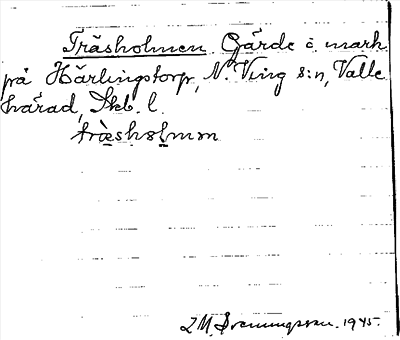 Träsholmen Gärde i mark
på Härlingstorp, N. Ving s:n, Valle
härad, Skb. l.
träsholmm
ZM Svenningsson. 1945.